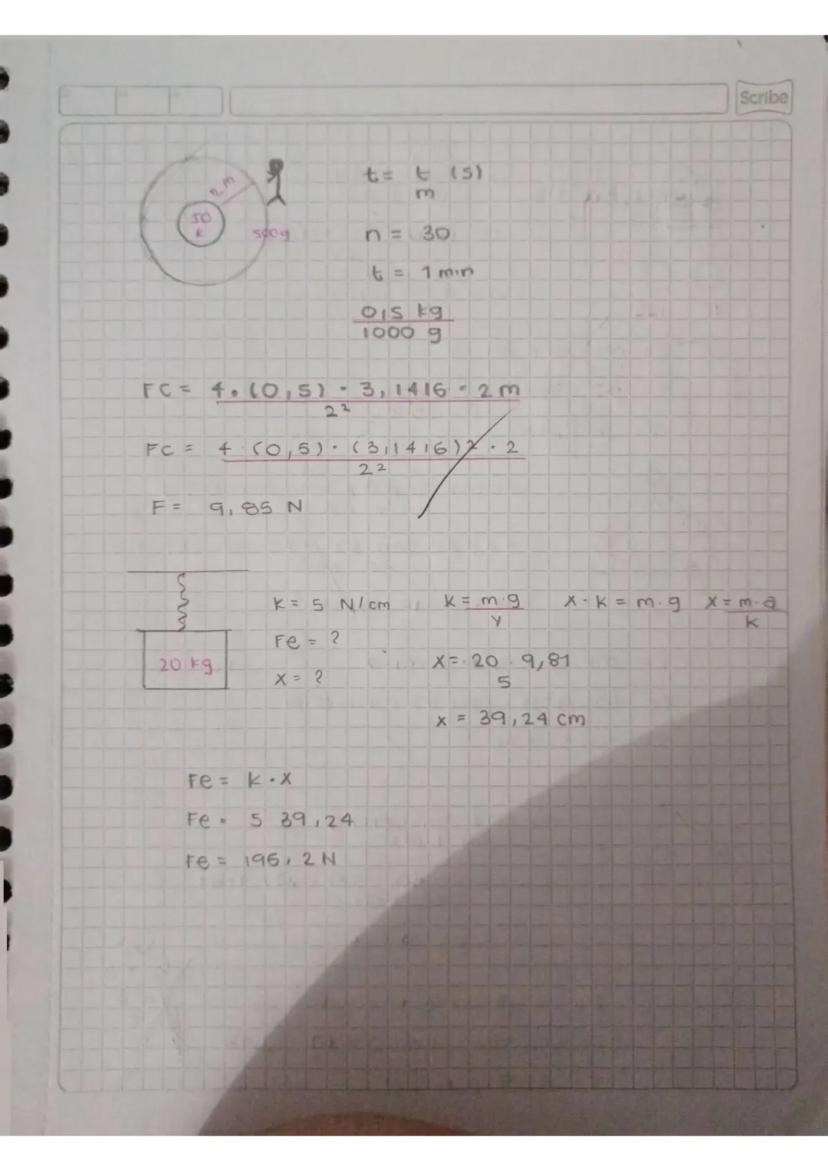 Scribe
2 m
50
500g
t = t (s)
m
n = 30
t = 1 min
0,5 kg
1000 g
FC = 4 . (0,5) - 3,1416 - 2 m
2²
FC = 4 (0,5) - (3,1416)2 . 2
2²
F = 9,85 N
20 kg
K = 5 N/cm
Fe = ?
x = ?
K = m.g
y
x - K = m . g
x = m . a
K
x = 20 9,81
5
x = 39,24 cm
Fe = K . x
Fe = 5 39,24
Fe = 196,2 N